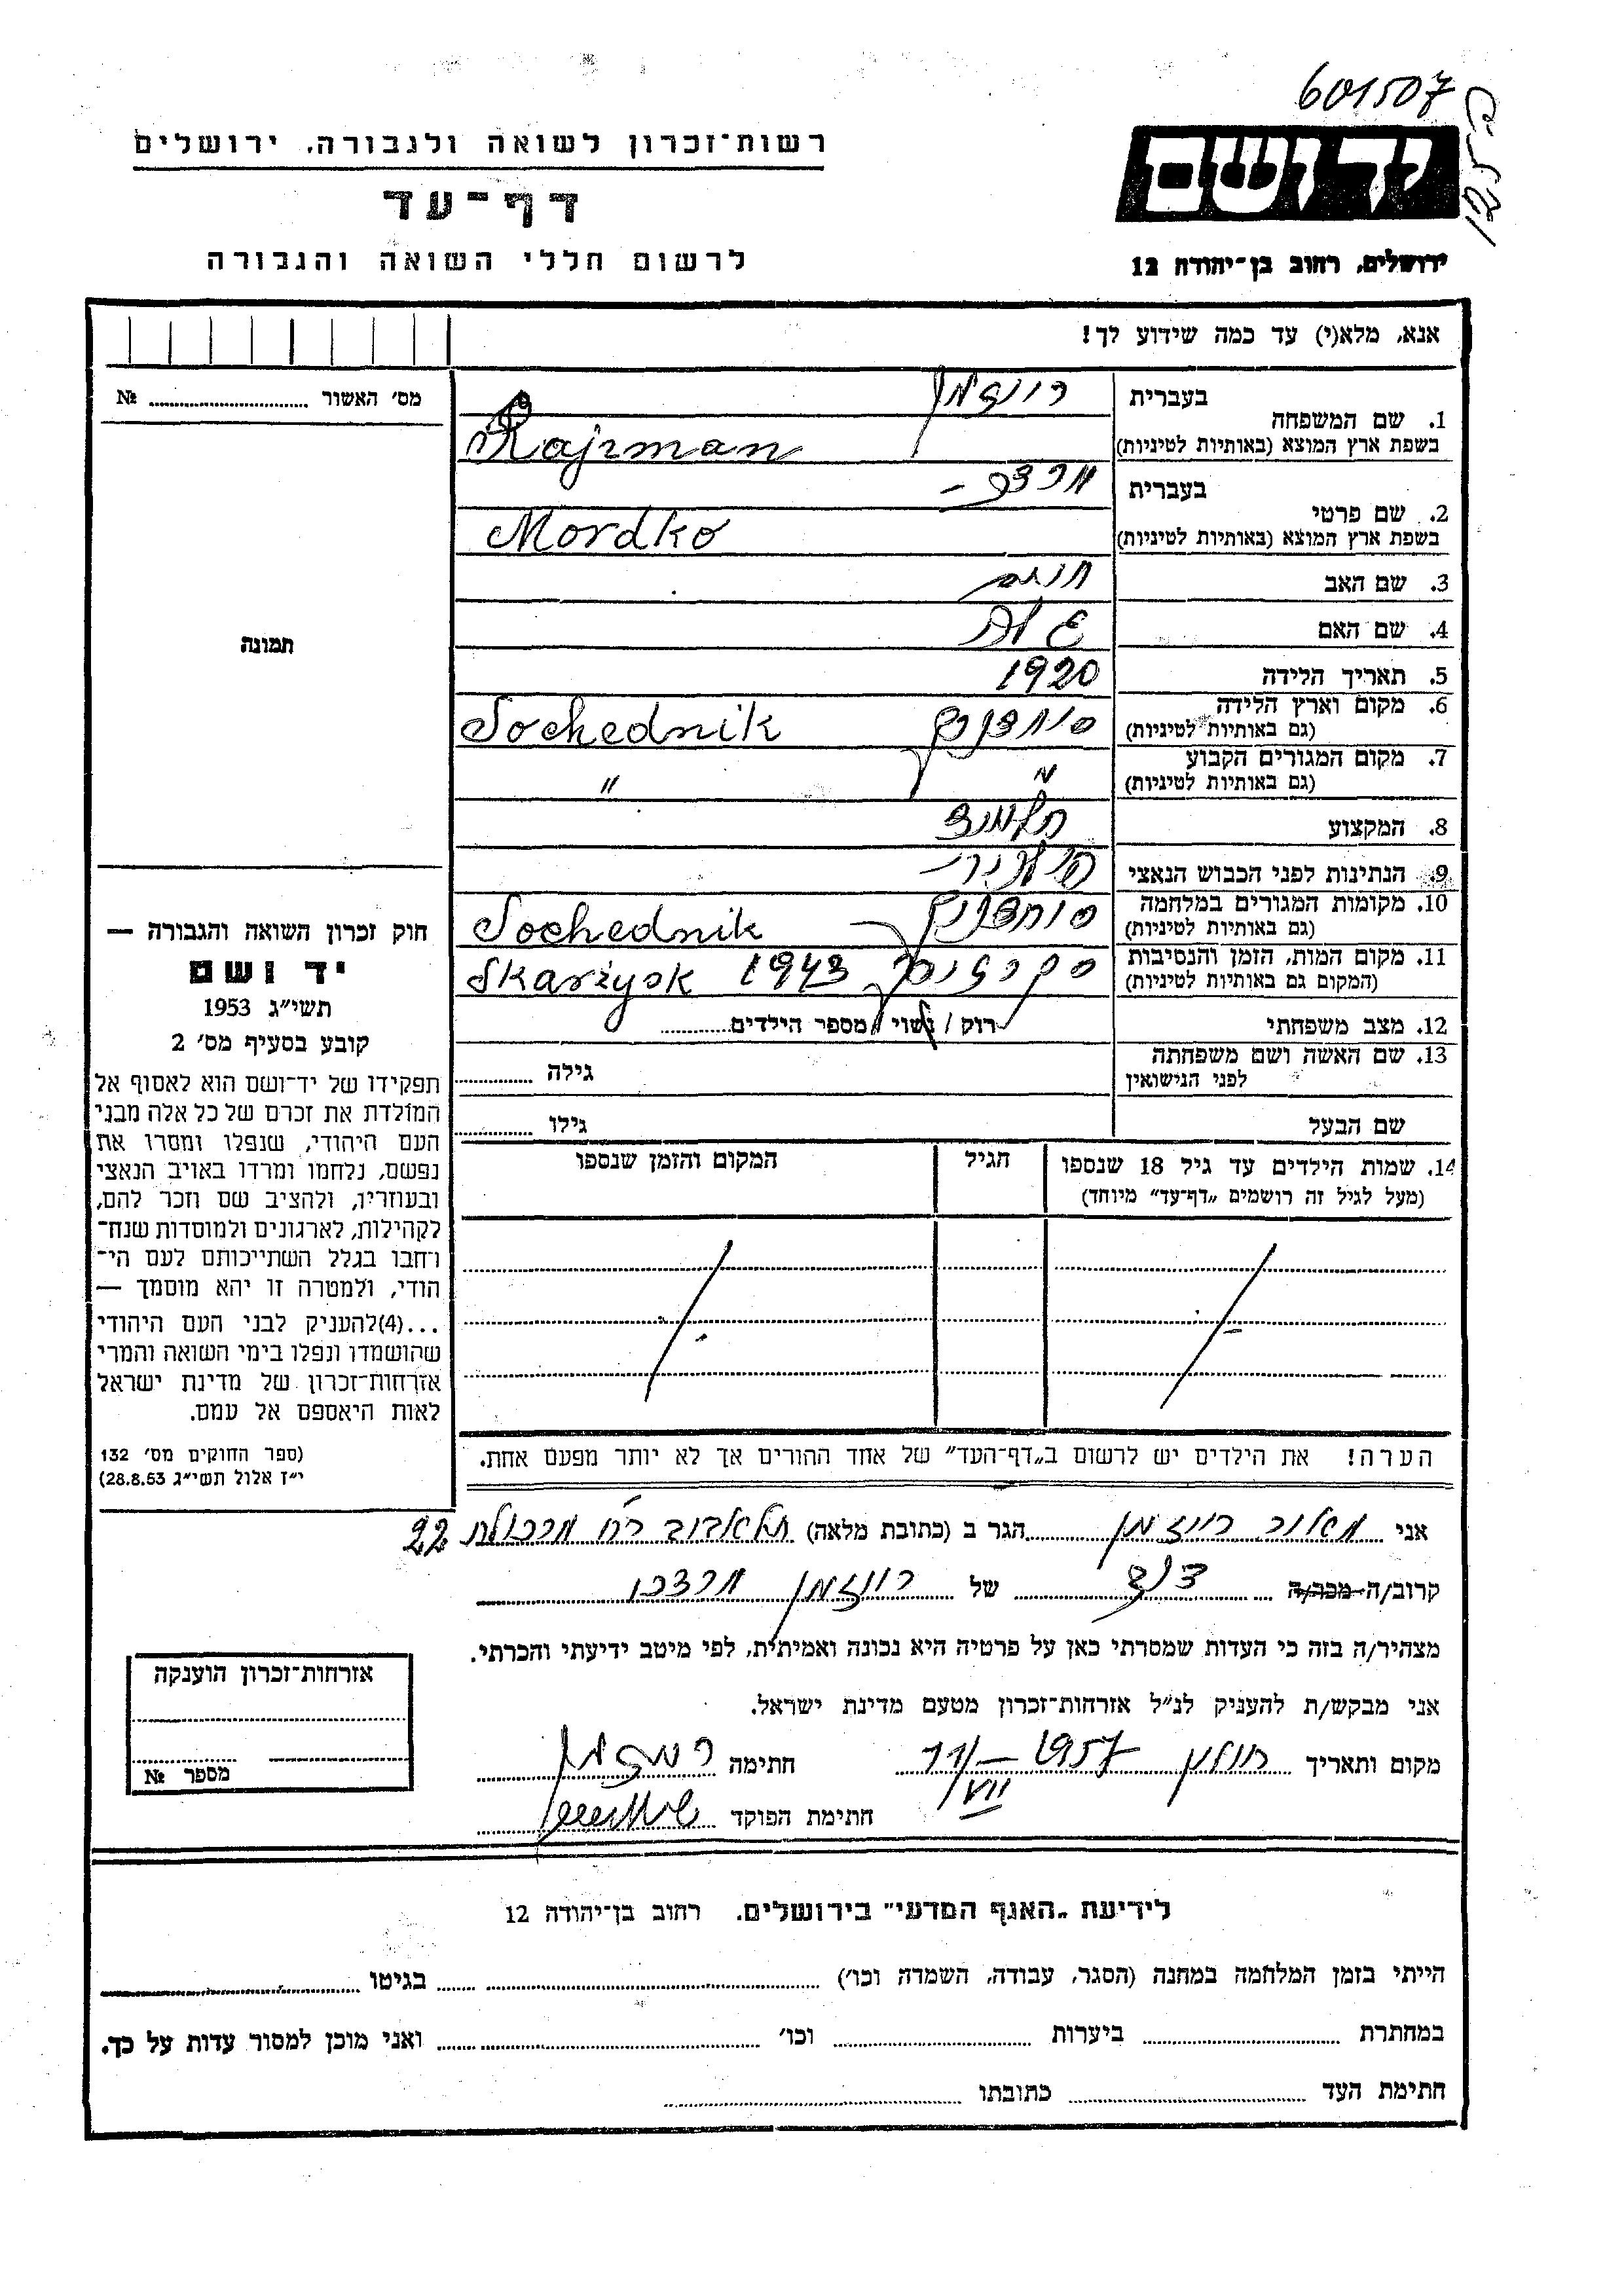 601507
125
יד ושם
רשות־זכרון לשואה ולגבורה, ירושלים
דף־עד
לרשום חללי השואה והגבורה
ירושלים, רחוב בן־יהודה 12
אנא, מלא(י) עד כמה שידוע לך!
מס׳ האשור № 
תמונה
1. שם המשפחה
בעברית רייזמן
בשפת ארץ המוצא (באותיות לטיניות) Rajzman
2. שם פרטי
בעברית מרדכי
בשפת ארץ המוצא (באותיות לטיניות) Mordko
3. שם האב
4. שם האם
5. תאריך הלידה 1920
6. מקום וארץ הלידה
(גם באותיות לטיניות) Sochednik
7. מקום המגורים הקבוע
(גם באותיות לטיניות) " "
8. המקצוע תלמיד
9. הנתינות לפני הכבוש הנאצי
10. מקומות המגורים במלחמה
(גם באותיות לטיניות) Sochednik
11. מקום המות, הזמן והנסיבות
(המקום גם באותיות לטיניות) Skarżysk 1943
12. מצב משפחתי רוק / נשוי / מספר הילדים
13. שם האשה ושם משפחתה גילה
לפני הנישואין
שם הבעל גילו
14. שמות הילדים עד גיל 18 שנספו הגיל המקום והזמן שנספו
(מעל לגיל זה רושמים „דף־עד״ מיוחד)
הערה! את הילדים יש לרשום ב„דף־העד״ של אחד ההורים אך לא יותר מפעם אחת.
חוק זכרון השואה והגבורה —
יד ושם
תשי״ג 1953
קובע בסעיף מס׳ 2
תפקידו של יד־ושם הוא לאסוף אל
המולדת את זכרם של כל אלה מבני
העם היהודי, שנפלו ומסרו את
נפשם, נלחמו ומרדו באויב הנאצי
ובעוזריו, ולהציב שם וזכר להם,
לקהילות, לארגונים ולמוסדות שנח־
רחבו בגלל השתייכותם לעם הי־
הודי, ולמטרה זו יהא מוסמך —
...(4)להעניק לבני העם היהודי
שהושמדו ונפלו בימי השואה והמרי
אזרחות־זכרון של מדינת ישראל
לאות היאספם אל עמם.
(ספר החוקים מס׳ 132
י״ז אלול תשי״ג 28.8.53)
אני מאיר רייזמן הגר ב (כתובת מלאה) תל אביב רח׳ מרכולת 22
קרוב/ה מכר/ה דוד של רייזמן מרדכי
מצהיר/ה בזה כי העדות שמסרתי כאן על פרטיה היא נכונה ואמיתית, לפי מיטב ידיעתי והכרתי.
אני מבקש/ת להעניק לנ״ל אזרחות־זכרון מטעם מדינת ישראל.
מקום ותאריך חולון 1957 – 11/VII חתימה רייזמן
חתימת הפוקד
אזרחות־זכרון הוענקה
מספר №
לידיעת „האגף המדעי״ בירושלים. רחוב בן־יהודה 12
הייתי בזמן המלחמה במחנה (הסגר, עבודה, השמדה וכו׳) בגיטו
במחתרת ביערות וכו׳ ואני מוכן למסור עדות על כך.
חתימת העד כתובתו